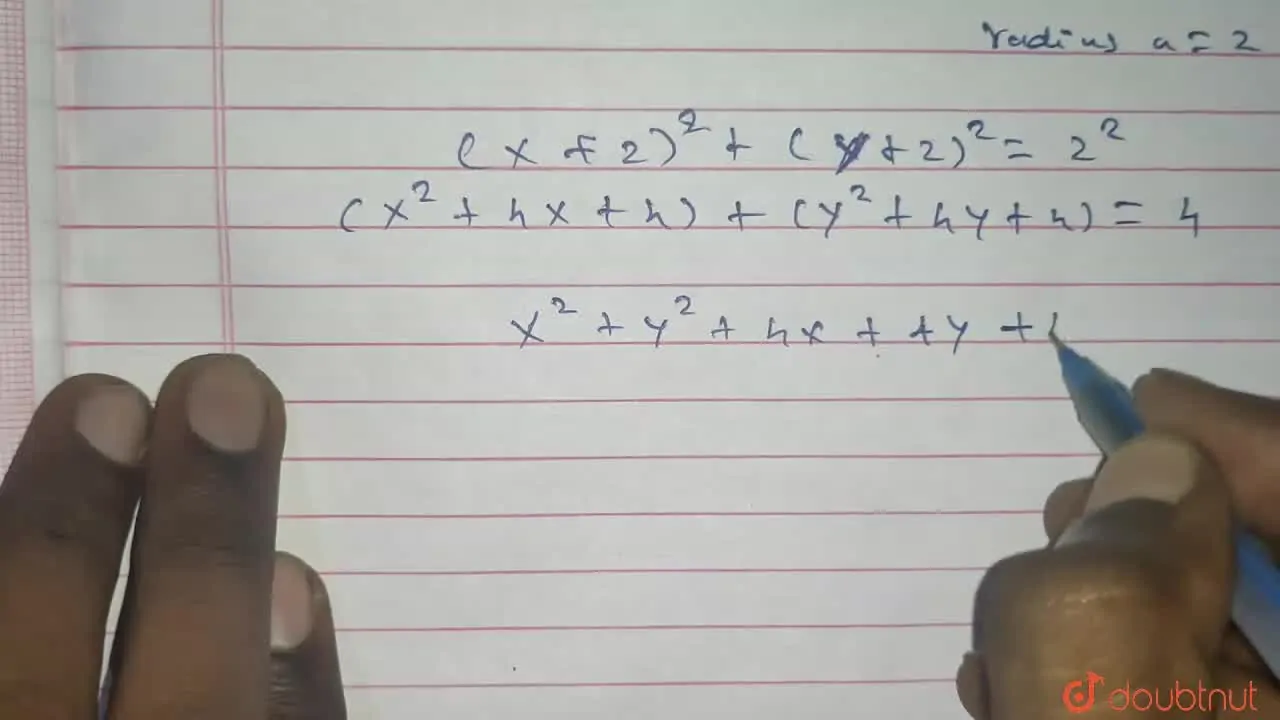 radius a = 2
(x + 2)² + (y + 2)² = 2²
(x² + 4x + 4) + (y² + 4y + 4) = 4
x² + y² + 4x + 4y +
doubtnut